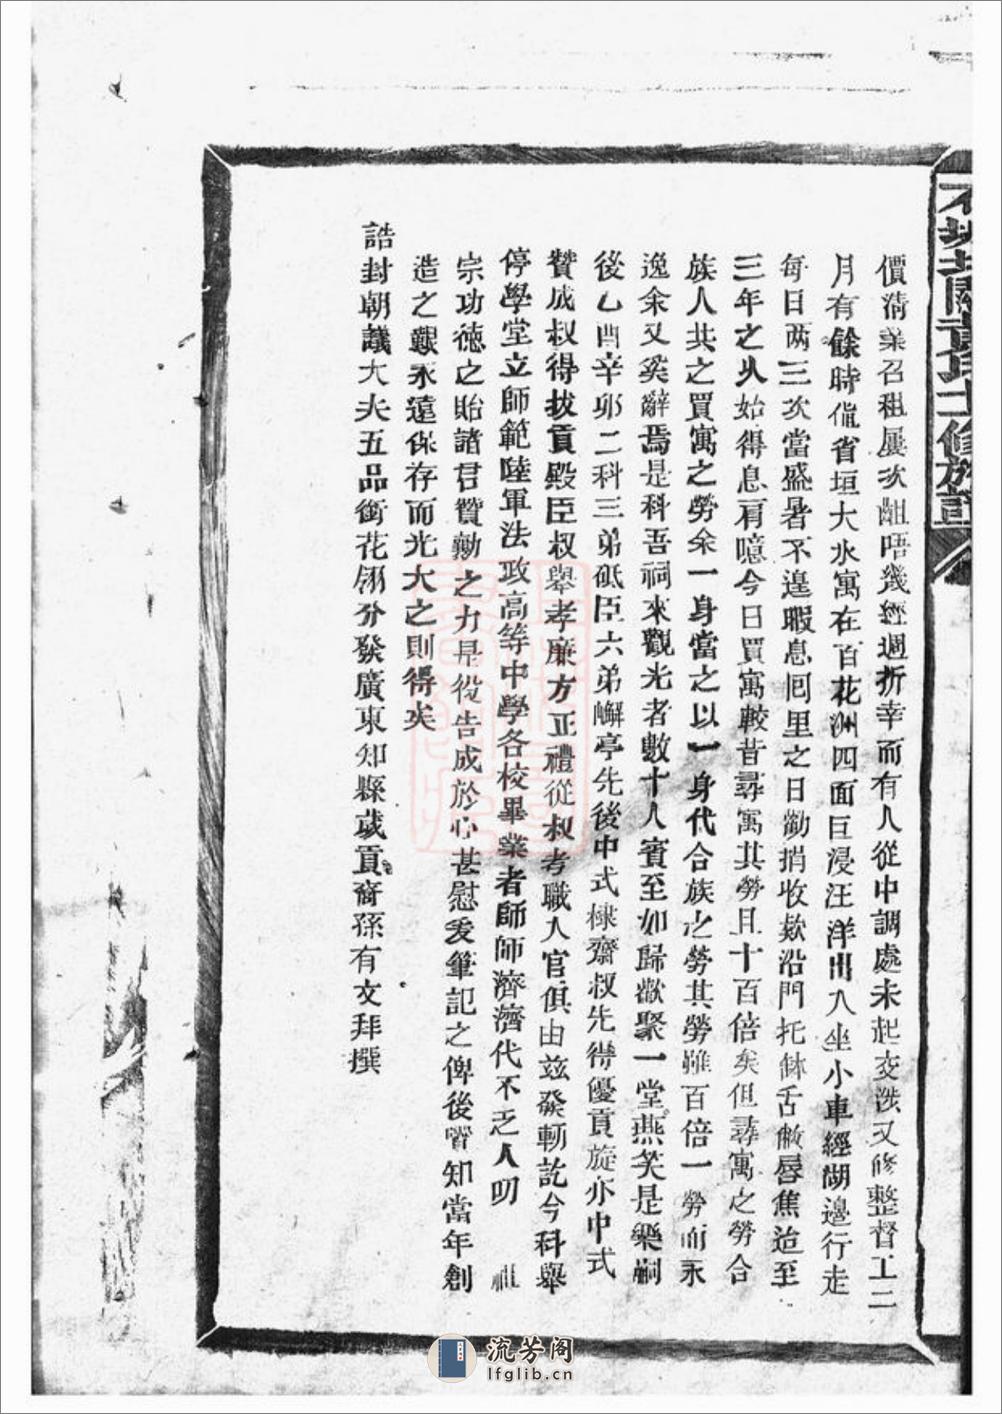 價清業召租屢次齟唔幾經週折幸而有人從中調處未起交涉又修整督工二
月有餘時值省垣大水寓在百花洲四面巨浸汪洋出入坐小車經湖邊行走
每日两三次當盛暑不遑暇息囘里之日勸捐收欵沿門托鉢舌敝唇焦迨至
三年之久始得息肩噫今日買寓較昔尋寓其勞且十百倍矣但尋寓之勞合
族人共之買寓之勞余一身當之以一身代合族之勞其勞雖百倍一勞而永
逸余又奚辭焉是科吾祠來觀光者數十人賓至如歸歡聚一堂燕笑是樂嗣
後乙酉辛卯二科三弟砥臣六弟觶亭先後中式棣齋叔先得優貢旋亦中式
贊成叔得拔貢殿臣叔舉孝廉方正禮從叔考職人官俱由玆發軔訖今科舉
停學堂立師範陸軍法政高等中學各校畢業者師師濟濟代不乏人叨 祖
宗功德之貽諸君贊勷之力是役告成於心甚慰爰筆記之俾後嘗知當年創
造之艱永遠保存而光大之則得矣
誥封朝議大夫五品銜花翎分發廣東知縣歲貢裔孫有文拜撰
流芳阁
lfglib.cn